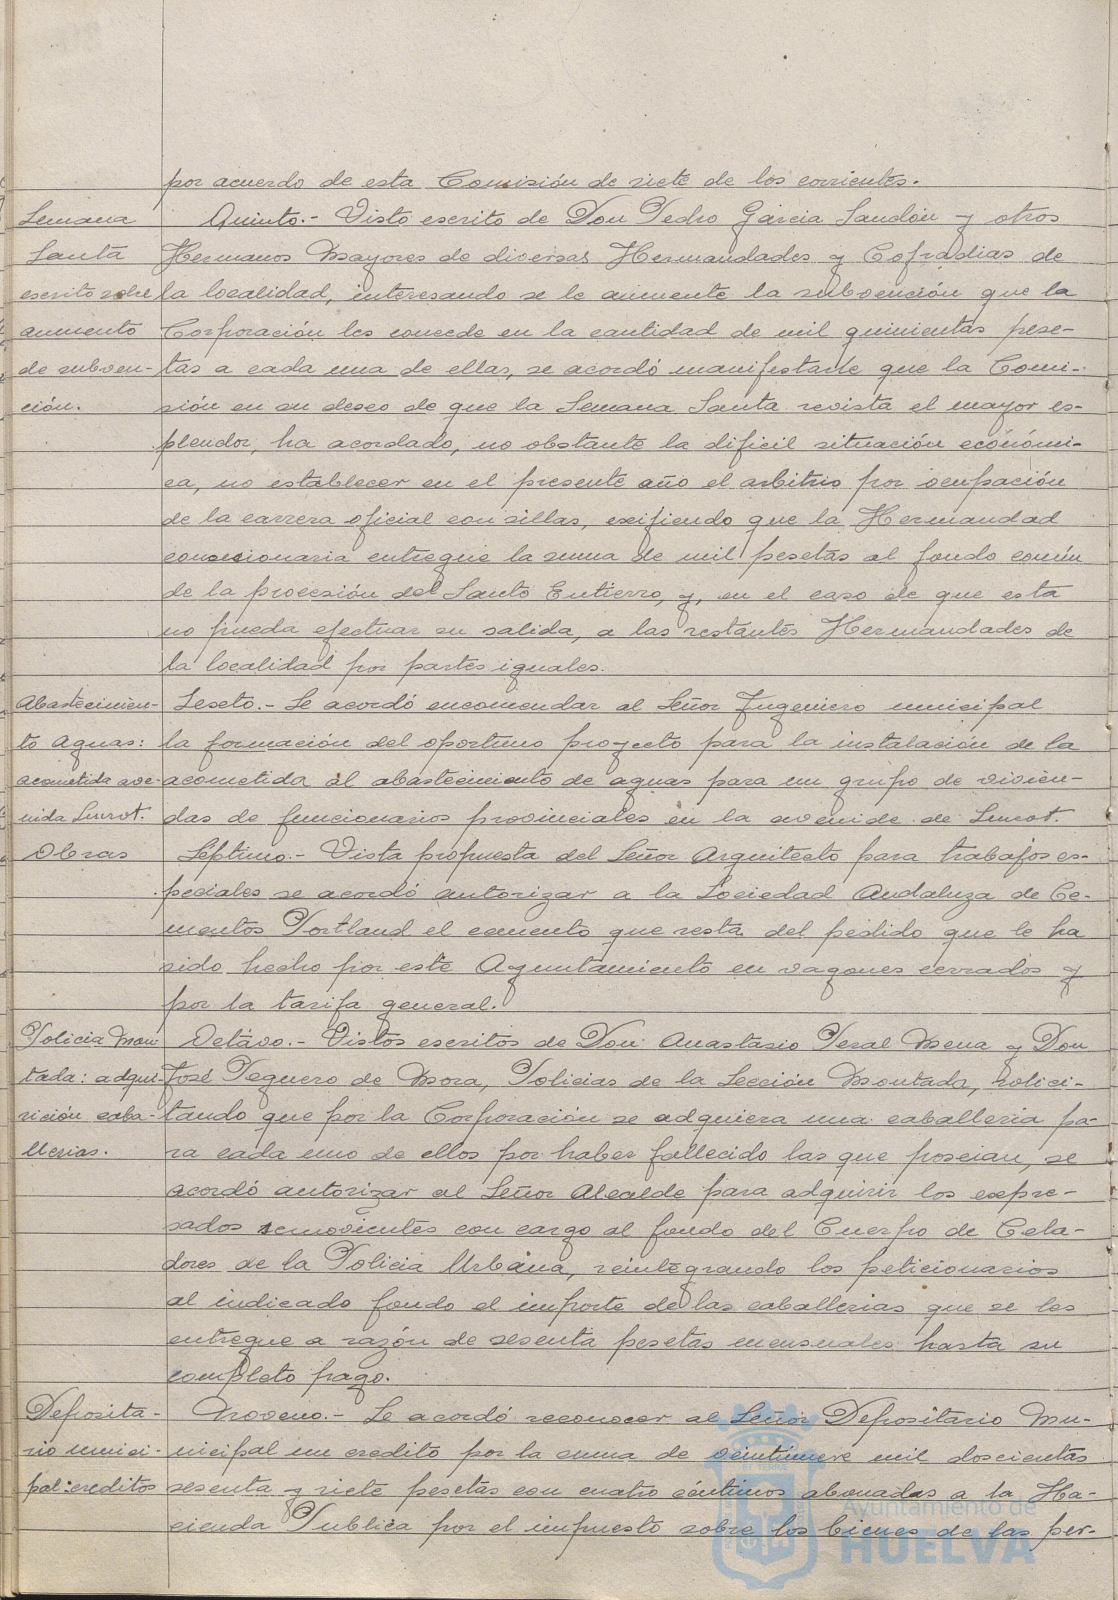 por acuerdo de esta Comisión de siete de los corrientes.
Semana
Santa
escrito sobre
aumento
de subven-
ción.
Quinto.- Visto escrito de Don Pedro Garcia Sandón y otros
Hermanos Mayores de diversas Hermandades y Cofradias de
la localidad, interesando se le aumente la subvención que la
Corporación les concede en la cantidad de mil quinientas pese-
tas a cada una de ellas, se acordó manifestarle que la Comi-
sión en su deseo de que la Semana Santa revista el mayor es-
plendor, ha acordado, no obstante la dificil situación económi-
ca, no establecer en el presente año el arbitrio por ocupación
de la carrera oficial con sillas, exigiendo que la Hermandad
concesionaria entregue la suma de mil pesetas al fondo común
de la procesión del Santo Entierro, y, en el caso de que esta
no pueda efectuar su salida, a las restantes Hermandades de
la localidad por partes iguales.
Abastecimien-
to aguas:
acometida ave-
nida
Sesto.- Se acordó encomendar al Señor Ingeniero municipal
la formación del oportuno proyecto para la instalación de la
acometida al abastecimiento de aguas para un grupo de vivien-
das de funcionarios provinciales en la avenida de
Obras
Septimo.- Vista propuesta del Señor Arquitecto para trabajos es-
peciales se acordó autorizar a la Sociedad Andaluza de Ce-
mentos Portland el cemento que resta del pedido que le ha
sido hecho por este Ayuntamiento en vagones cerrados y
por la tarifa general.
Policia Mon
tada: adqui-
sición caba-
llerias.
Octavo.- Vistos escritos de Don Anastasio Peral Mena y Don
José Peguero de Mora, Policias de la Sección Montada, solici-
tando que por la Corporación se adquiera una caballeria pa-
ra cada uno de ellos por haber fallecido las que poseian, se
acordó autorizar al Señor Alcalde para adquirir los expre-
sados semovientes con cargo al fondo del Cuerpo de Cela-
dores de la Policia Urbana, reintegrando los peticionarios
al indicado fondo el importe de las caballerias que se les
entregue a razón de sesenta pesetas mensuales hasta su
completo pago.
Deposita-
rio munici-
pal: creditos
Noveno.- Se acordó reconocer al Señor Depositario Mu-
nicipal un credito por la suma de veintinueve mil doscientas
sesenta y siete pesetas con cuatro céntimos abonadas a la Ha-
cienda Publica por el impuesto sobre los bienes de las per-
Ayuntamiento de
HUELVA